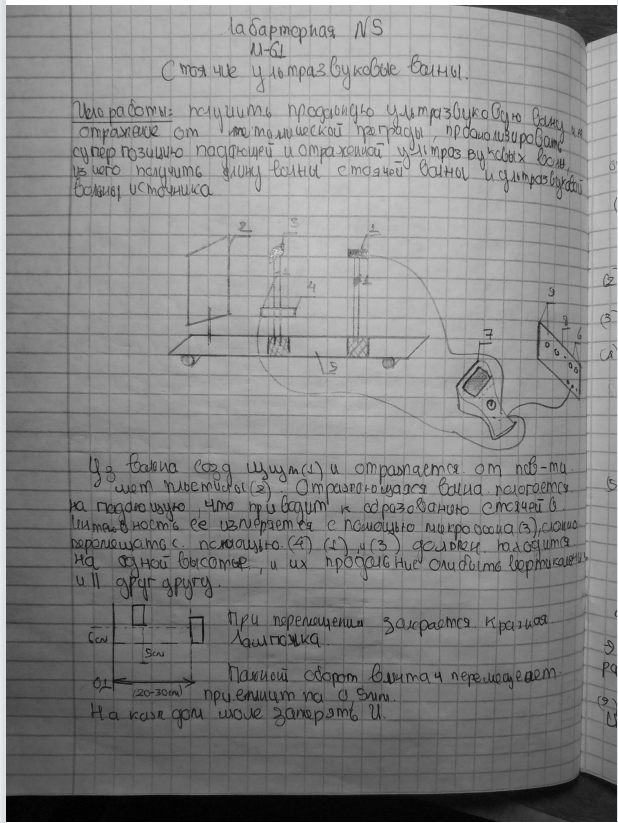 Лабарторная N5
М-61
Стоячие ультразвуковые волны.
Цель работы: получить продольную ультразвуковую волну
отражение от металлической преграды, проанализировать
суперпозицию падающей и отраженной ультразвуковых волн
из него получить длину волны стоячей волны и ультразвуковой
волны источника
2 3 1
4
9
8 6
7
5
Уз волна созд (1) и отражается от пов-ти
мет пластины (2). Отражающаяся волна
на падающую, что приводит к образованию стоячей в
ее измеряется с помощью микрофона (3),
с помощью (4) (1) и (3) должен
на одной высоте, и их быть
и || друг другу.
При перемещении загорается красная
лампочка.
6см
5см
оборот винта 4 перемещает
(20-30см)
на 0,5mm.
На каждом замерять U.